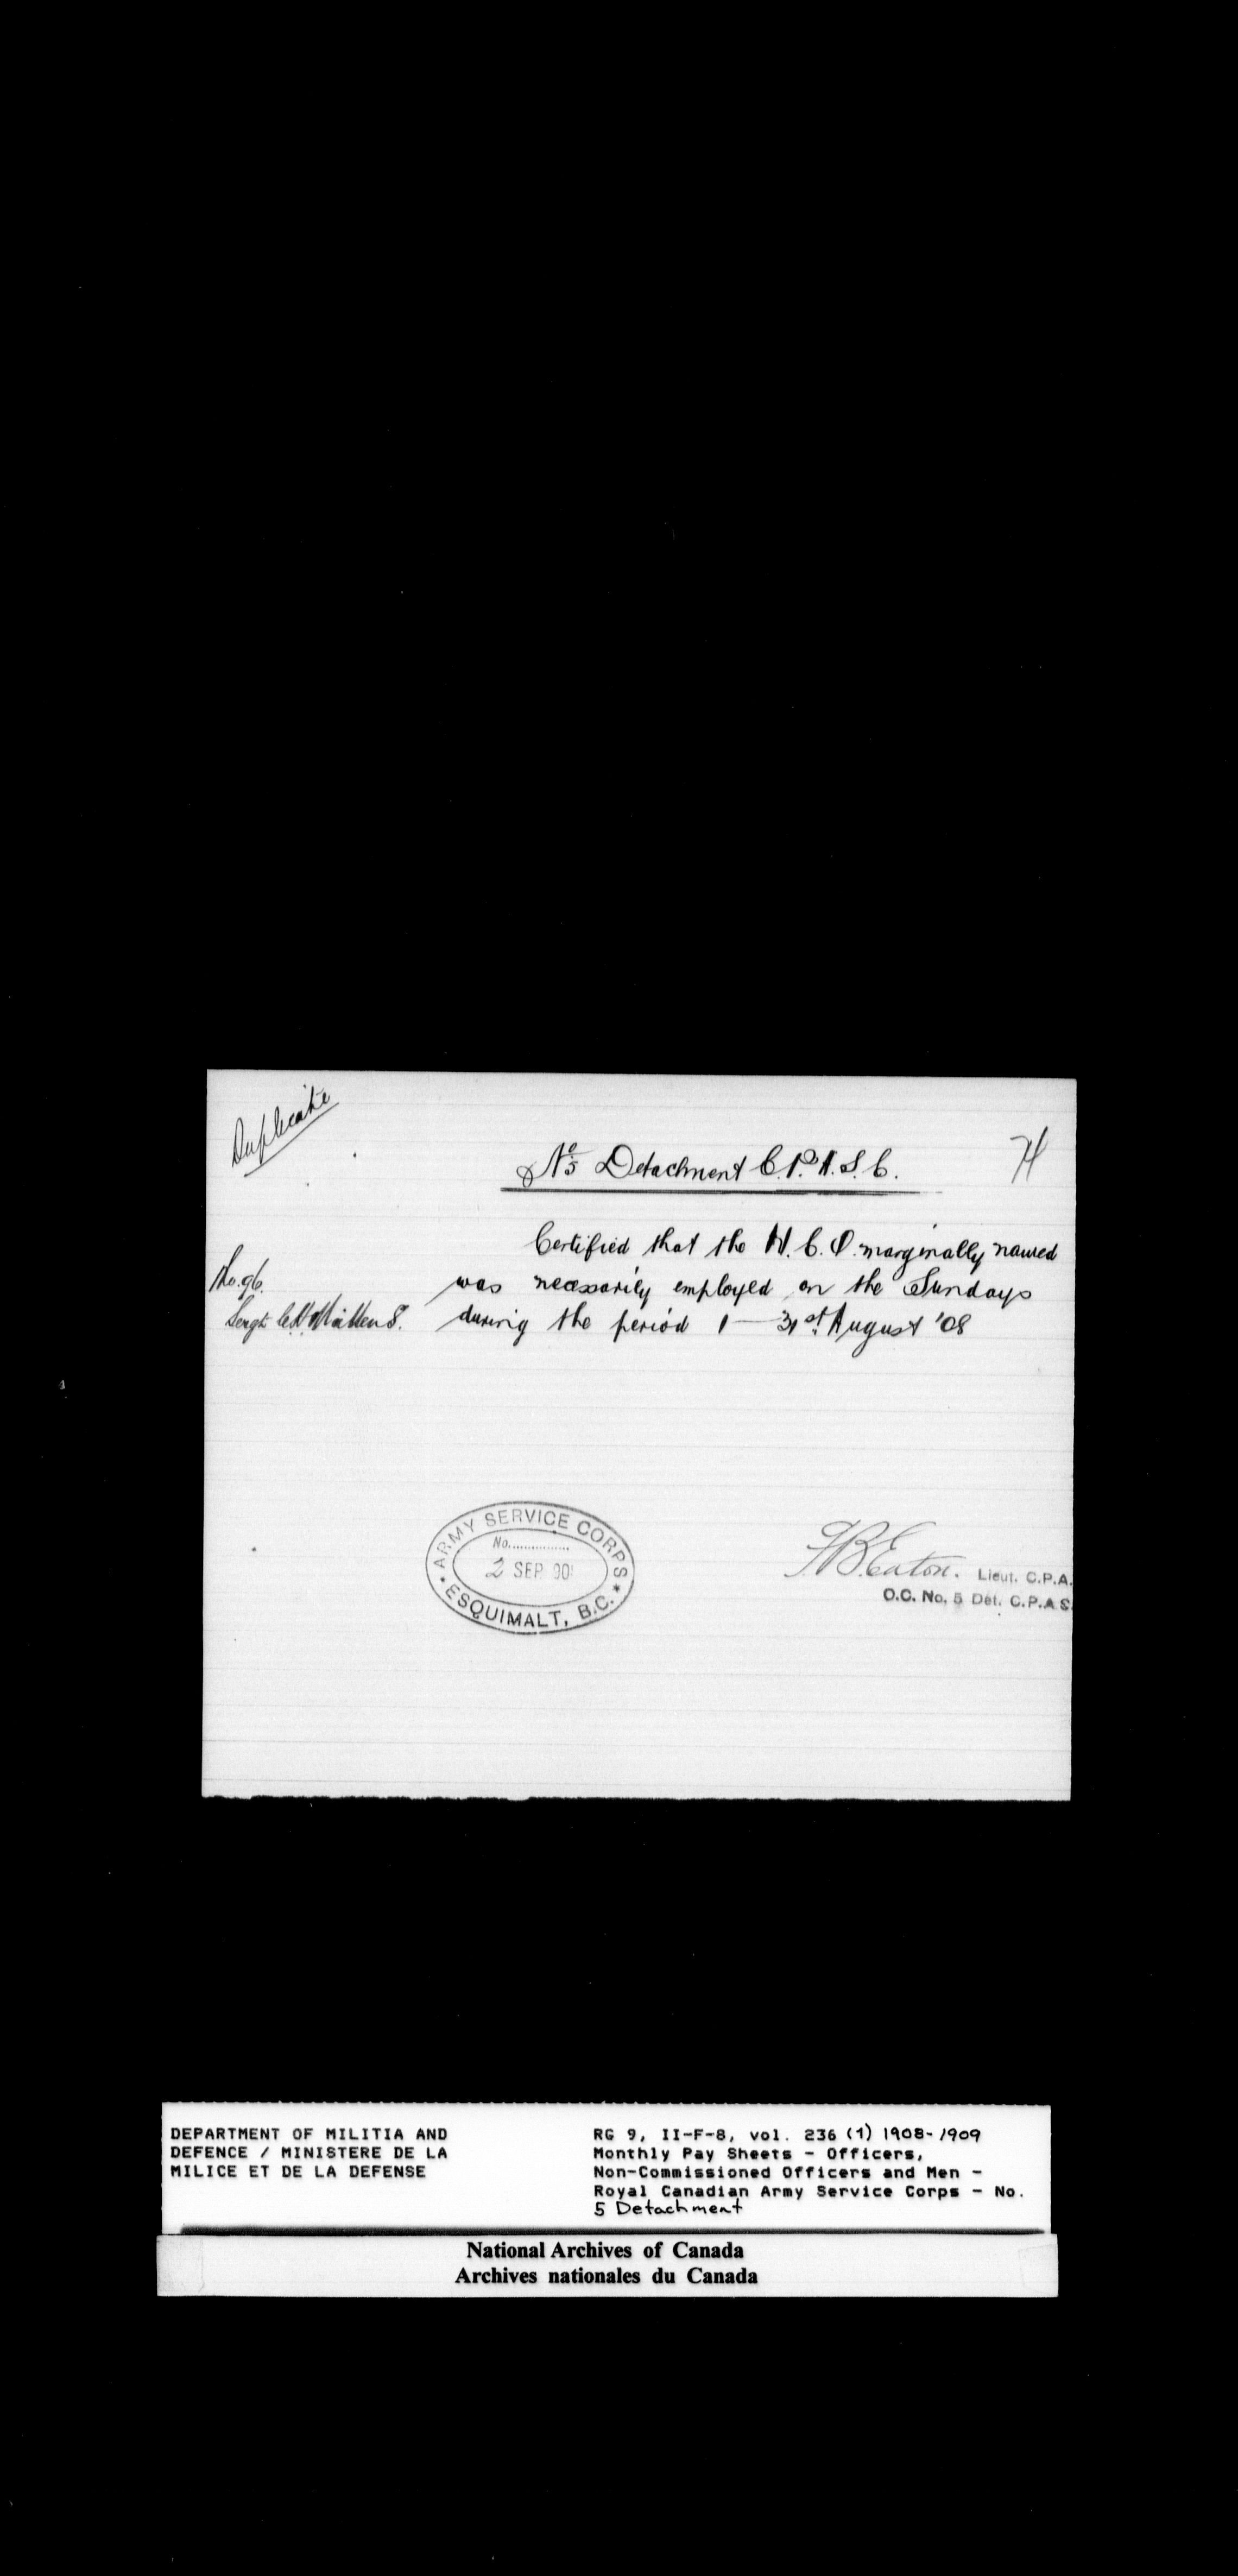 Duplicate
No 5 Detachment C.P.A.S.C.
74
Certified that the N.C.O. marginally named
No. 96.
was necessarily employed on the Sundays
Sergt.
during the period 1 — 31st August '08
ARMY SERVICE CORPS
No.
2 SEP 190
ESQUIMALT, B.C.
Eaton. Lieut. C.P.A.
O.C. No. 5 Det. C.P.A.S.
DEPARTMENT OF MILITIA AND
DEFENCE / MINISTERE DE LA
MILICE ET DE LA DEFENSE
RG 9, II-F-8, vol. 236 (1) 1908-1909
Monthly Pay Sheets - Officers,
Non-Commissioned Officers and Men -
Royal Canadian Army Service Corps - No.
5 Detachment
National Archives of Canada
Archives nationales du Canada